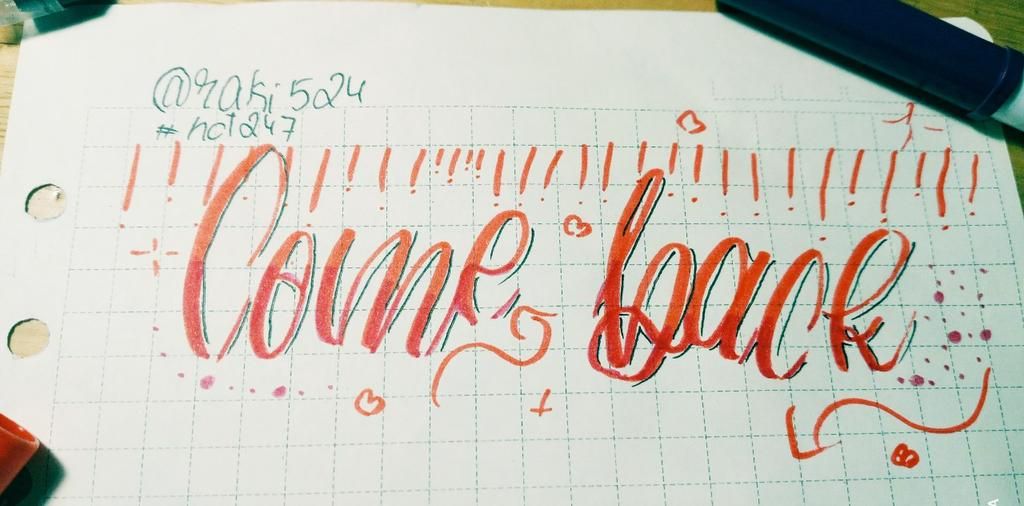 @raki524
#nct247
Come back